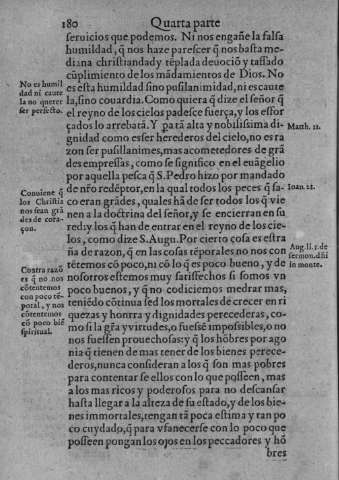 180 Quarta parte
seruicios que podemos. Ni nos engañe la falsa
humildad, q̃ nos haze parescer q̃ nos basta me-
diana christiandad y tẽplada deuociõ y tassado
cũplimiento de los mãdamientos de Dios. No
es esta humildad sino pusillanimidad, ni es caute
la, sino couardia. Como quiera q̃ dize el señor q̃
el reyno de los cielos padesce fuerça, y los esfor
çados lo arrebatã. Y para tã alta y nobilissima di
gnidad como es ser herederos del cielo, no es ra
zon ser pusillanimes, mas acometedores de grã
des empressas, como se significo en el euãgelio
por aquella pesca q̃ S. Pedro hizo por mandado
de nr̃o redẽptor, en la qual todos los peces q̃ sa-
co eran grãdes, quales hã de ser todos los q̃ vie
nen a la doctrina del señor, y se encierran en su
red: y los q̃ han de entrar en el reyno de los cie-
los, como dize S. Augu. Por cierto cosa es estra
ña de razon, q̃ en las cosas tẽporales no nos con
tẽtemos cõ poco, ni cõ lo q̃ es poco bueno, y de
nosotros estemos muy satisfechos si somos vn
poco buenos, y q̃ no codiciemos medrar mas,
teniẽdo cõtinua sed los mortales de crecer en ri
quezas y honrra y dignidades perecederas, co-
mo si la grã y virtudes, o fuessẽ impossibles, o no
nos fuessen prouechosas: y q̃ los hõbres por ago
nia q̃ tienen de mas tener de los bienes perece-
deros, nunca consideran a los q̃ son mas pobres
para contentar se ellos con lo que posseen, mas
a los mas ricos y poderosos para no descansar
hasta llegar a la alteza de su estado, y de los bie-
nes immortales, tengan tã poca estima y tan po
co cuydado, q̃ para vfanecerse con lo poco que
posseen pongan los ojos en los peccadores y hõ
bres
No es humil
dad ni caute
la no querer
ser perfecto.
Conuiene q̃
los Christia
nos sean grã
des de cora-
çon.
Contra razõ
es q̃ no nos
cõtentemos
con poco tẽ-
poral, y nos
cõtentemos
cõ poco biẽ
spiritual.
Matth. 11.
Ioan. 21.
Aug. li. 1. de
sermon. dñi
in monte.